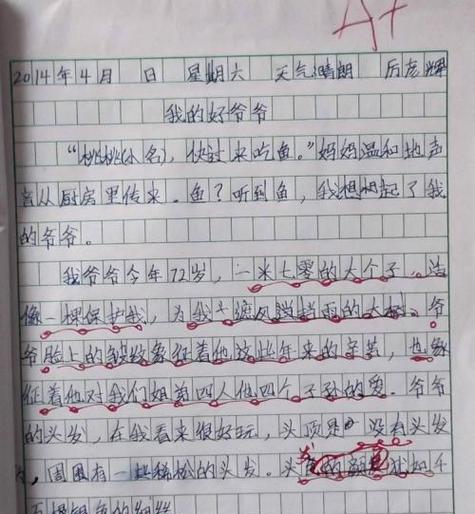 A+
2014年4月 日 星期六 天气晴朗 后彦辉
我的好爷爷
“桃桃(小名),快过来吃鱼。”妈妈温和地声
音从厨房里传来。鱼?听到鱼,我想想起了我
的爷爷。
我爷爷今年72岁,一米七零的大个子。浩
像一棵保护我,为我遮风挡雨的大树。爷
爷脸上的皱纹象征着他这些年来的辛苦,也象
征着他对我们姐弟四人他四个子孙的爱。爷爷
的头发,在我看来很好玩,头顶是 没有头发
,周围有一些稀松的头发。头 的颜色犹如千
万根银色的细丝